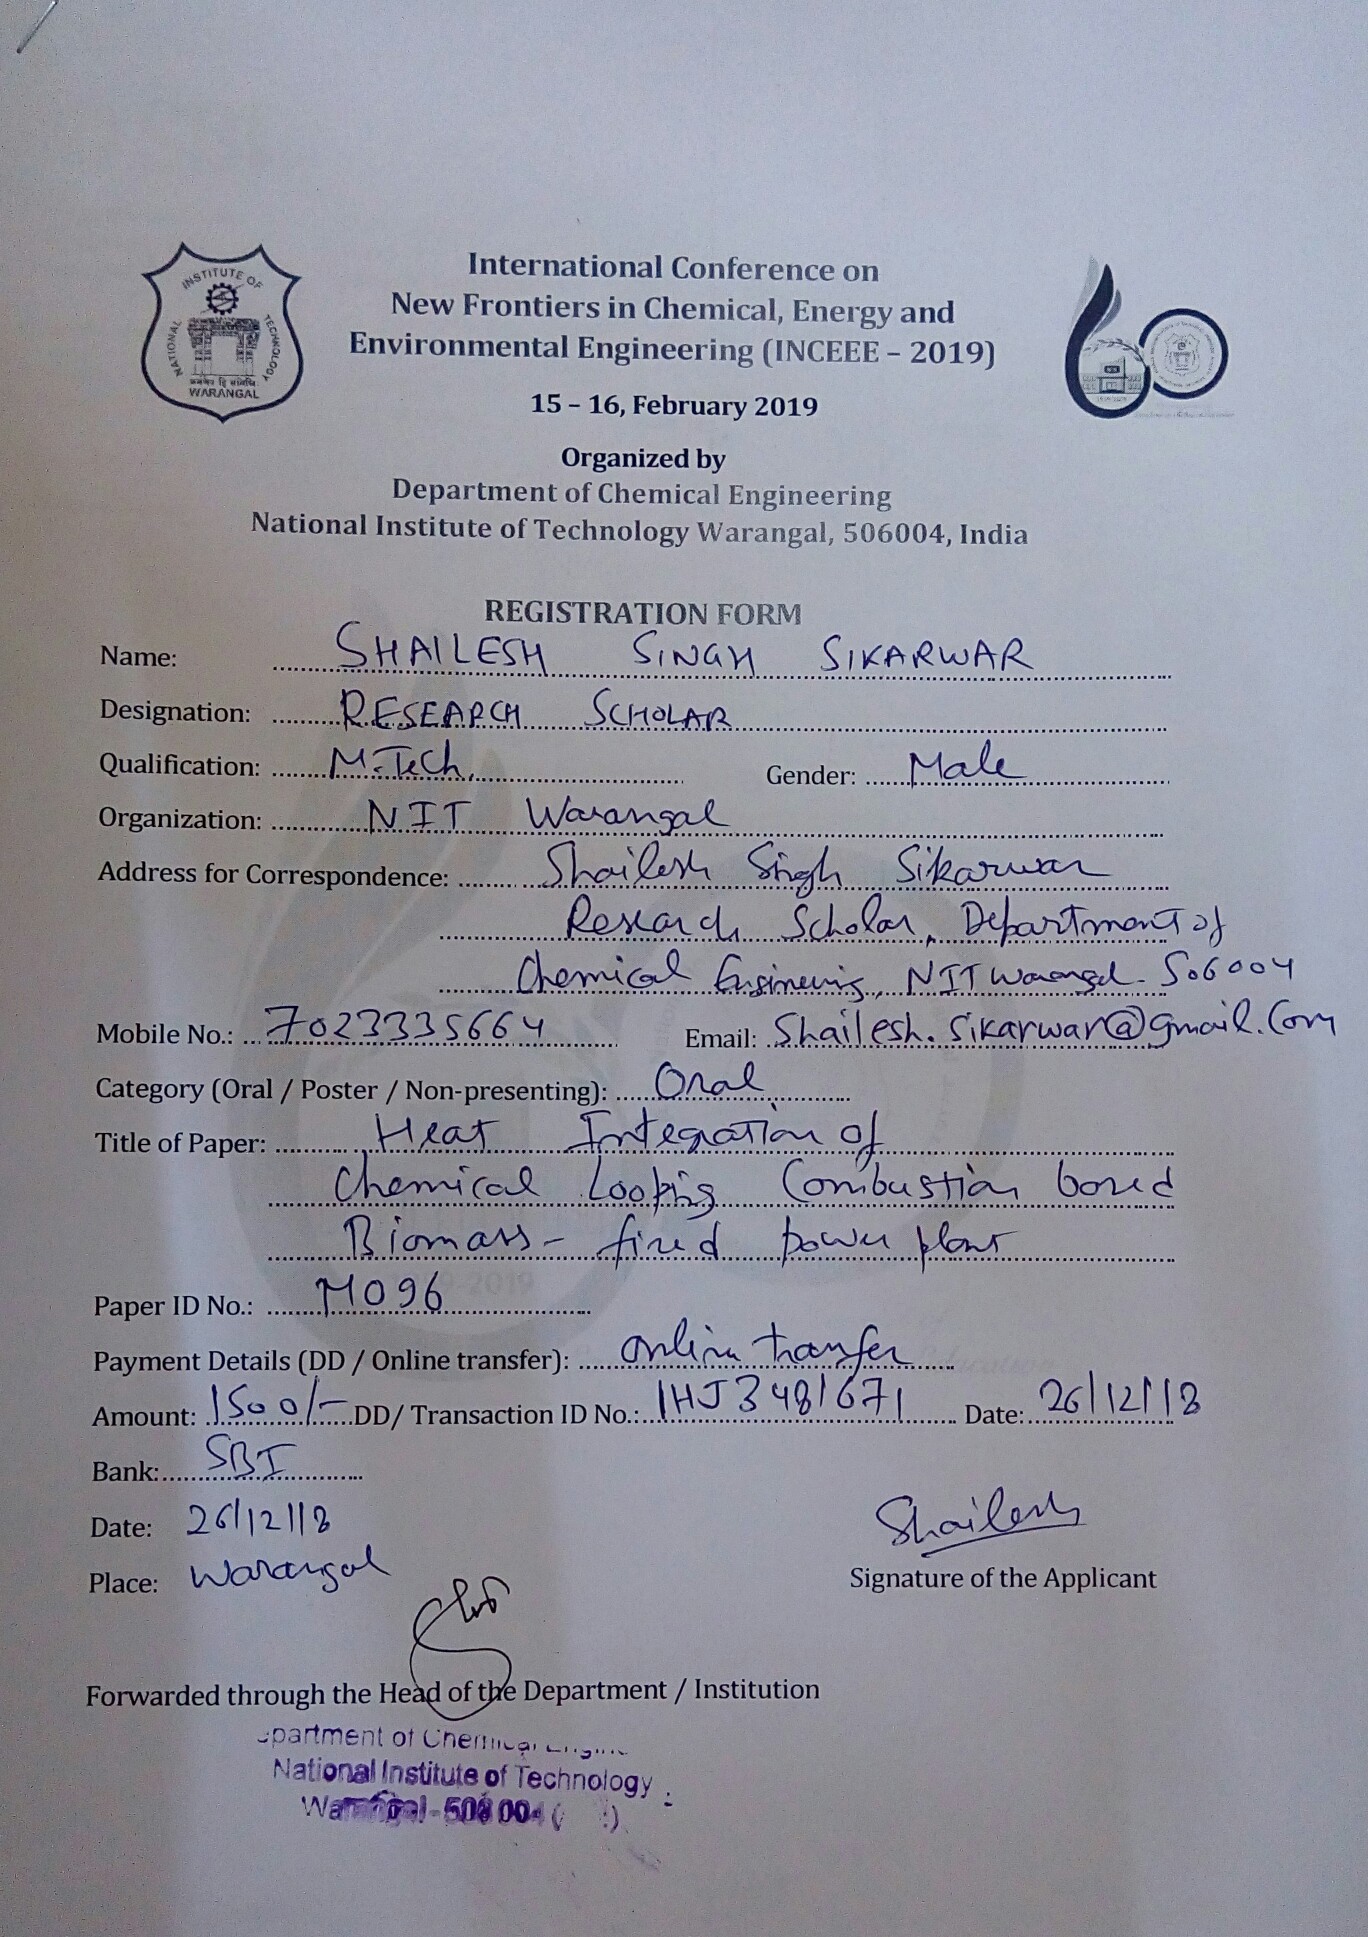 INSTITUTE OF
NATIONAL
TECHNOLOGY
WARANGAL
International Conference on
New Frontiers in Chemical, Energy and
Environmental Engineering (INCEEE – 2019)
15 – 16, February 2019
Organized by
Department of Chemical Engineering
National Institute of Technology Warangal, 506004, India
REGISTRATION FORM
Name: SHAILESH SINGH SIKARWAR
Designation: RESEARCH SCHOLAR
Qualification: M.Tech. Gender: Male
Organization: NIT Warangal
Address for Correspondence: Shailesh Singh Sikarwar
Research Scholar, Department of
Chemical Engineering, NIT Warangal - 506004
Mobile No.: 7023335664 Email: Shailesh.Sikarwar@gmail.Com
Category (Oral / Poster / Non-presenting): Oral
Title of Paper: Heat Integration of
Chemical Looping Combustion based
Biomass - fired power plant
Paper ID No.: M096
Payment Details (DD / Online transfer): Online transfer
Amount: 1500/- DD/ Transaction ID No.: IHJ3481671 Date: 26/12/18
Bank: SBI
Date: 26/12/18
Place: Warangal
Shailesh
Signature of the Applicant
Forwarded through the Head of the Department / Institution
partment of Chemical
National Institute of Technology
Warangal - 506 004